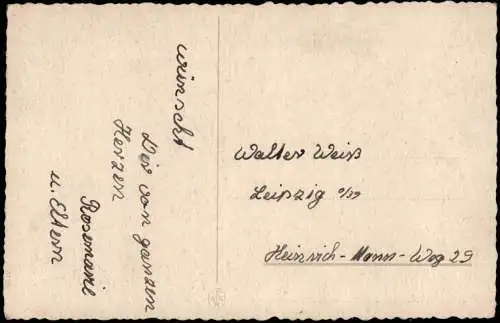 wünscht
Dir von ganzen
Herzen
Rosemarie
u. Eltern
Walter Weiß
Leipzig
Heinrich-Mann-Weg 29